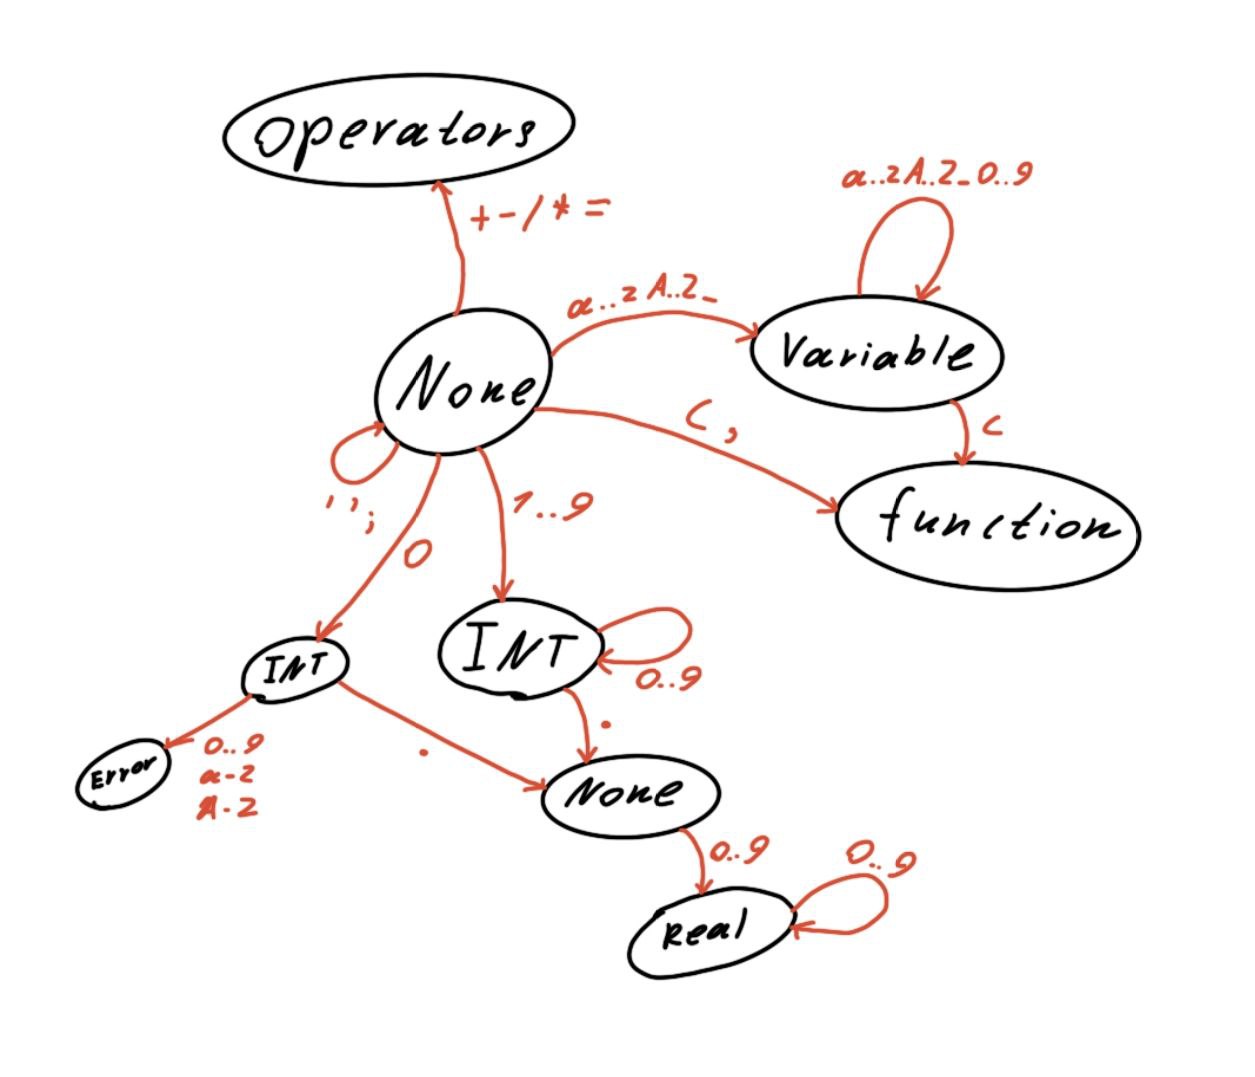 Operators
+ - / * =
a..z A..Z_ 0..9
a..z A..Z_
Variable
None
( ,
(
function
' ' ;
1..9
0
INT
INT
0..9
.
.
Error
0..9
a-z
A-Z
None
0..9
0..9
Real